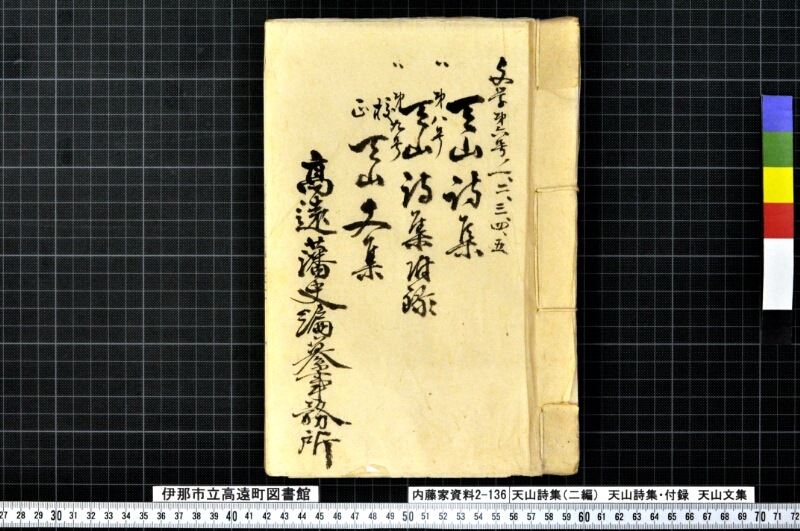 文学第六号ノ一、二、三、四、五
天山詩集
〃 第八号
天山詩集附録
〃 第九号
校正 天山文集
高遠藩史編纂事務所
伊那市立高遠町図書館
内藤家資料2-136 天山詩集(二編) 天山詩集・付録 天山文集
27 28 29 30 31 32 33 34 35 36 37 38 39 40 41 42 43 44 45 46 47 48 49 50 51 52 53 54 55 56 57 58 59 60 61 62 63 64 65 66 67 68 69 70 71 72